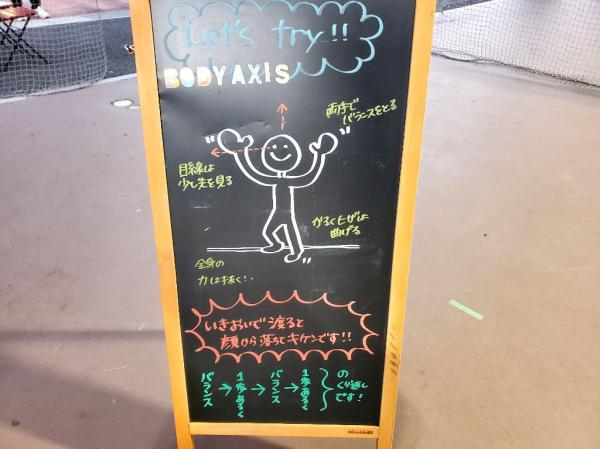 Let's try!!
BODY AXIS
両手で
バランスをとる
目線は
少し先を見る
かるくヒザは
曲げる
全身の
力は抜く!
いきおいで渡ると
顔から落ちてキケンです!!
バランス→1歩あるく→バランス→1歩あるく
のくり返しです!